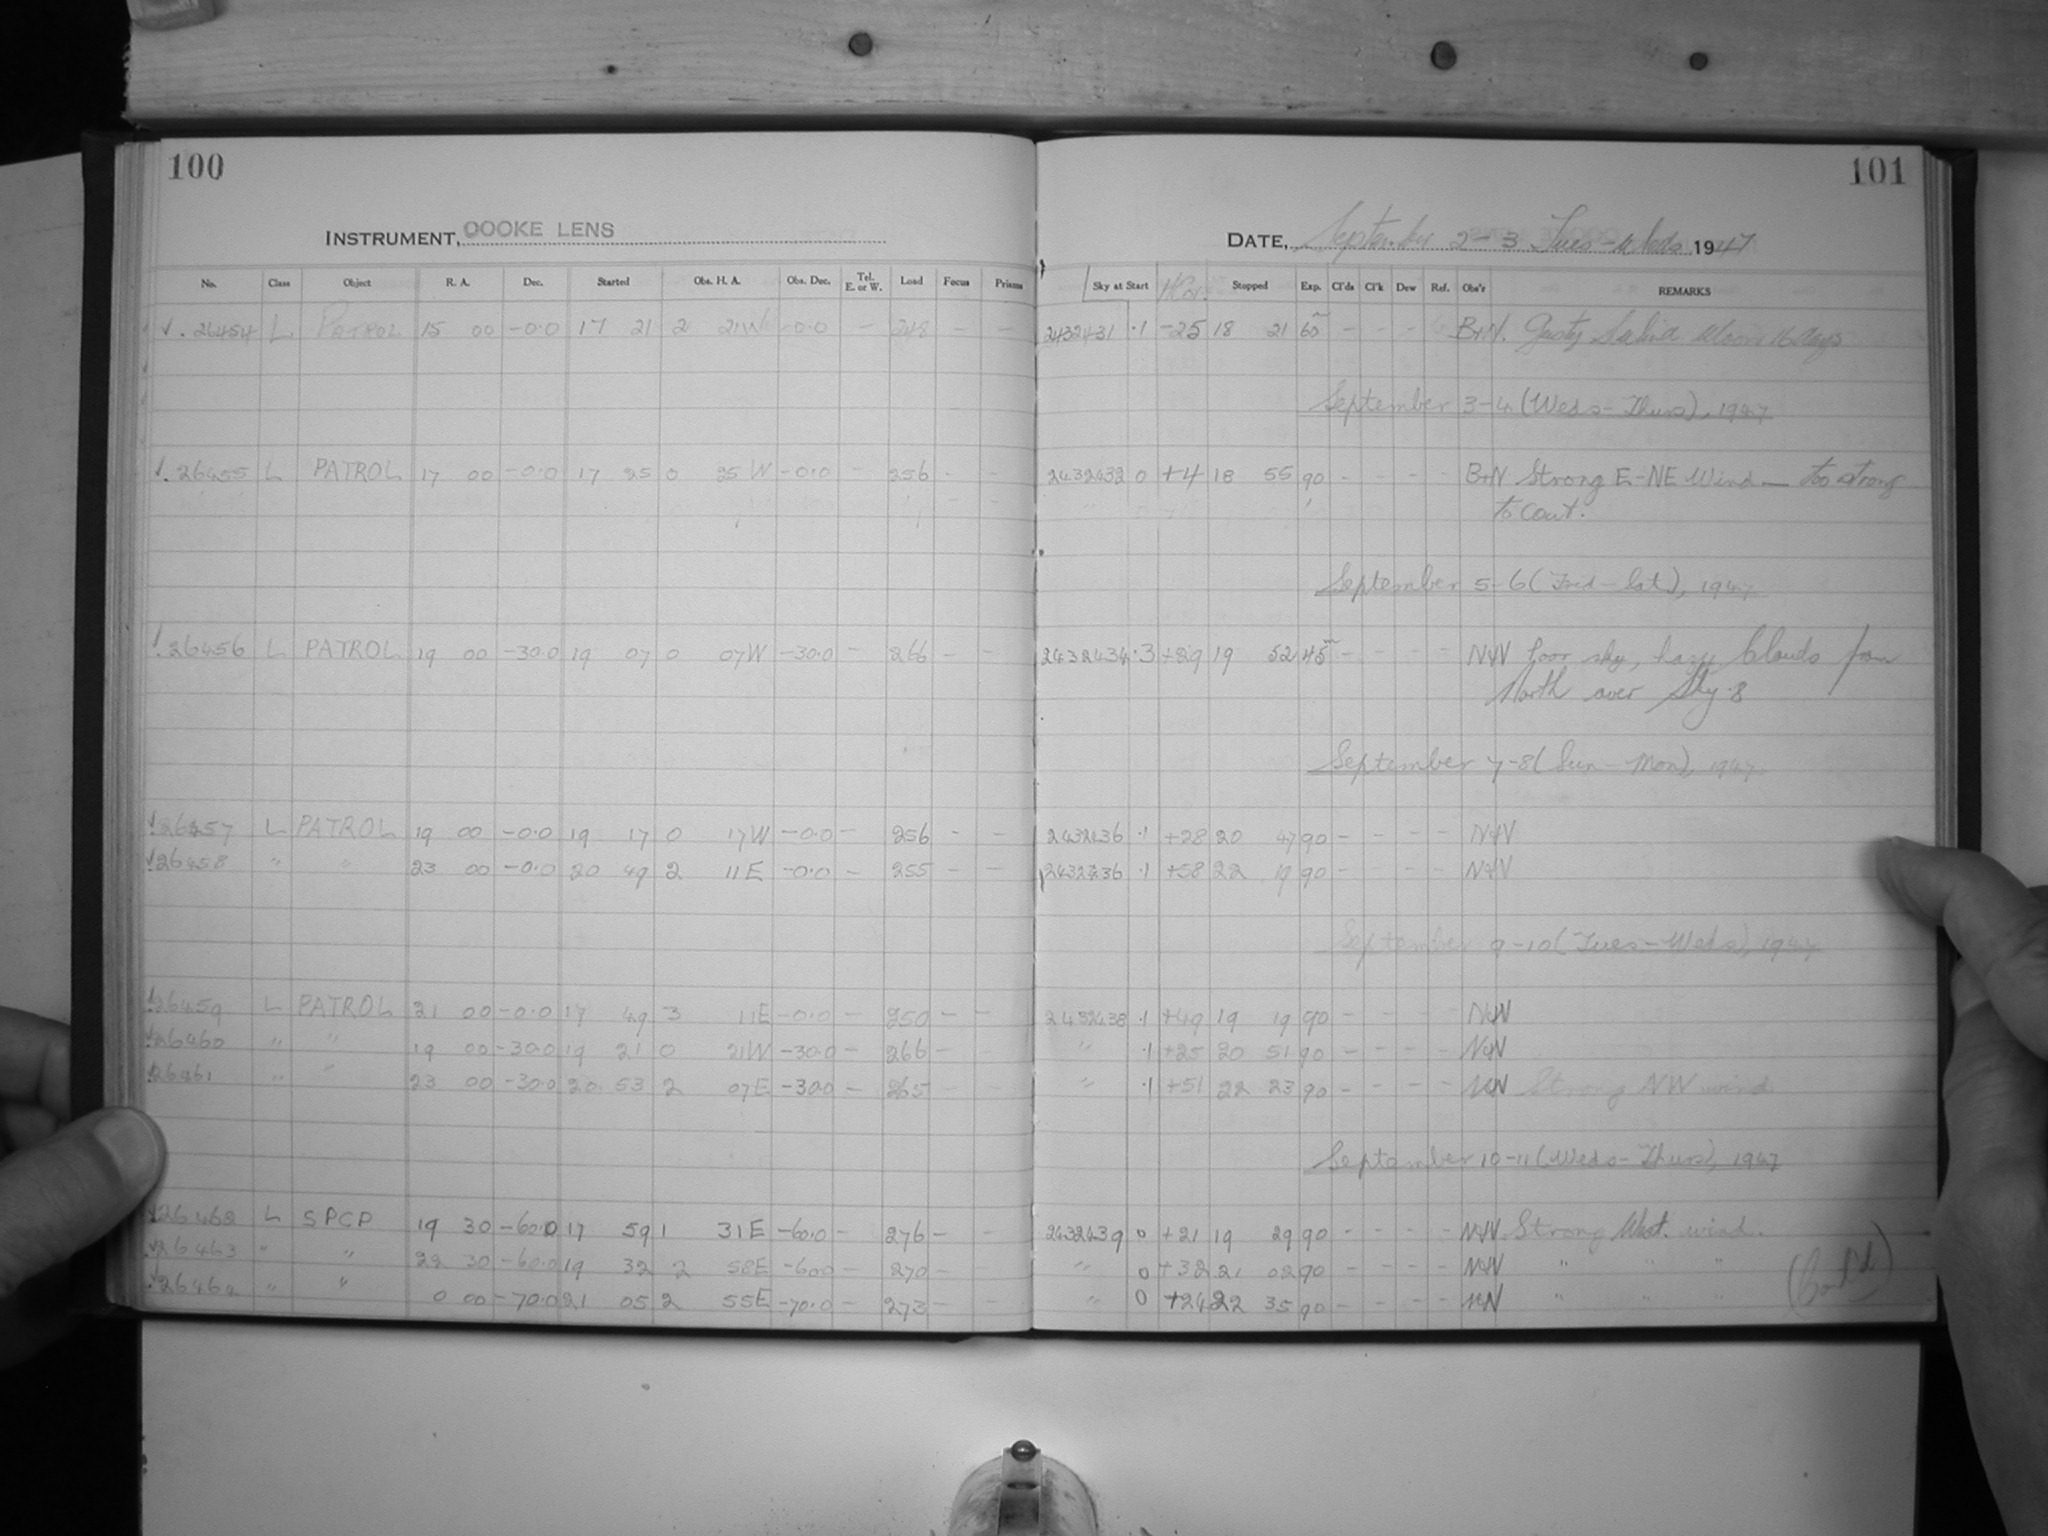 100
INSTRUMENT, COOKE LENS
No. Class Object R. A. Dec. Started Obs. H. A. Obs. Dec. Tel. E. or W. Load Focus Prisms
√. 26454 L PATROL 15 00 -0.0 17 21 2 21W -0.0 - 248 - -
√. 26455 L PATROL 17 00 -0.0 17 25 0 25 W -0.0 - 256 - -
√. 26456 L PATROL 19 00 -30.0 19 07 0 07W -30.0 - 266 - -
√ 26457 L PATROL 19 00 -0.0 19 17 0 17W -0.0 - 256 - -
√ 26458 " " 23 00 -0.0 20 49 2 11E -0.0 - 255 - -
√ 26459 L PATROL 21 00 -0.0 17 49 3 11E -0.0 - 250 - -
√ 26460 " " 19 00 -30.0 19 21 0 21W -30.0 - 266 - -
√ 26461 " " 23 00 -30.0 20 53 2 07E -30.0 - 265 - -
√ 26462 L SPCP 19 30 -60.0 17 59 1 31E -60.0 - 276 - -
√ 26463 " " 22 30 -60.0 19 32 2 58E -60.0 - 270 - -
√ 26464 " " 0 00 -70.0 21 05 2 55E -70.0 - 273 - -
101
DATE, September 2-3 Tues-Weds 1947
Sky at Start Stopped Exp. Cl'ds Cl'k Dew Ref. Obs'r REMARKS
2432431 .1 -25 18 21 60 - - - B+N. Gusty Moon 16 days
September 3-4 (Weds-Thurs), 1947
2432432 0 +4 18 55 90 - - - - B+N Strong E-NE Wind — too strong
to cont.
September 5-6 (Frid-Sat), 1947
2432434 .3 +29 19 52 45 - - - - N+N Poor sky, hazy Clouds from
North over Sky .8
September 7-8 (Sun-Mon), 1947
2432436 .1 +28 20 47 90 - - - - N+N
2432436 .1 +58 22 19 90 - - - - N+N
September 9-10 (Tues-Weds), 1947
2432438 .1 +49 19 19 90 - - - - N+N
" .1 +25 20 51 90 - - - - N+N
" .1 +51 22 23 90 - - - - N+N Strong NW wind
September 10-11 (Weds-Thurs), 1947
2432439 0 +21 19 29 90 - - - - N+N Strong West. wind.
" 0 +32 21 02 90 - - - - N+N " " "
" 0 +24 22 35 90 - - - - N+N " " "
(Cont'd)